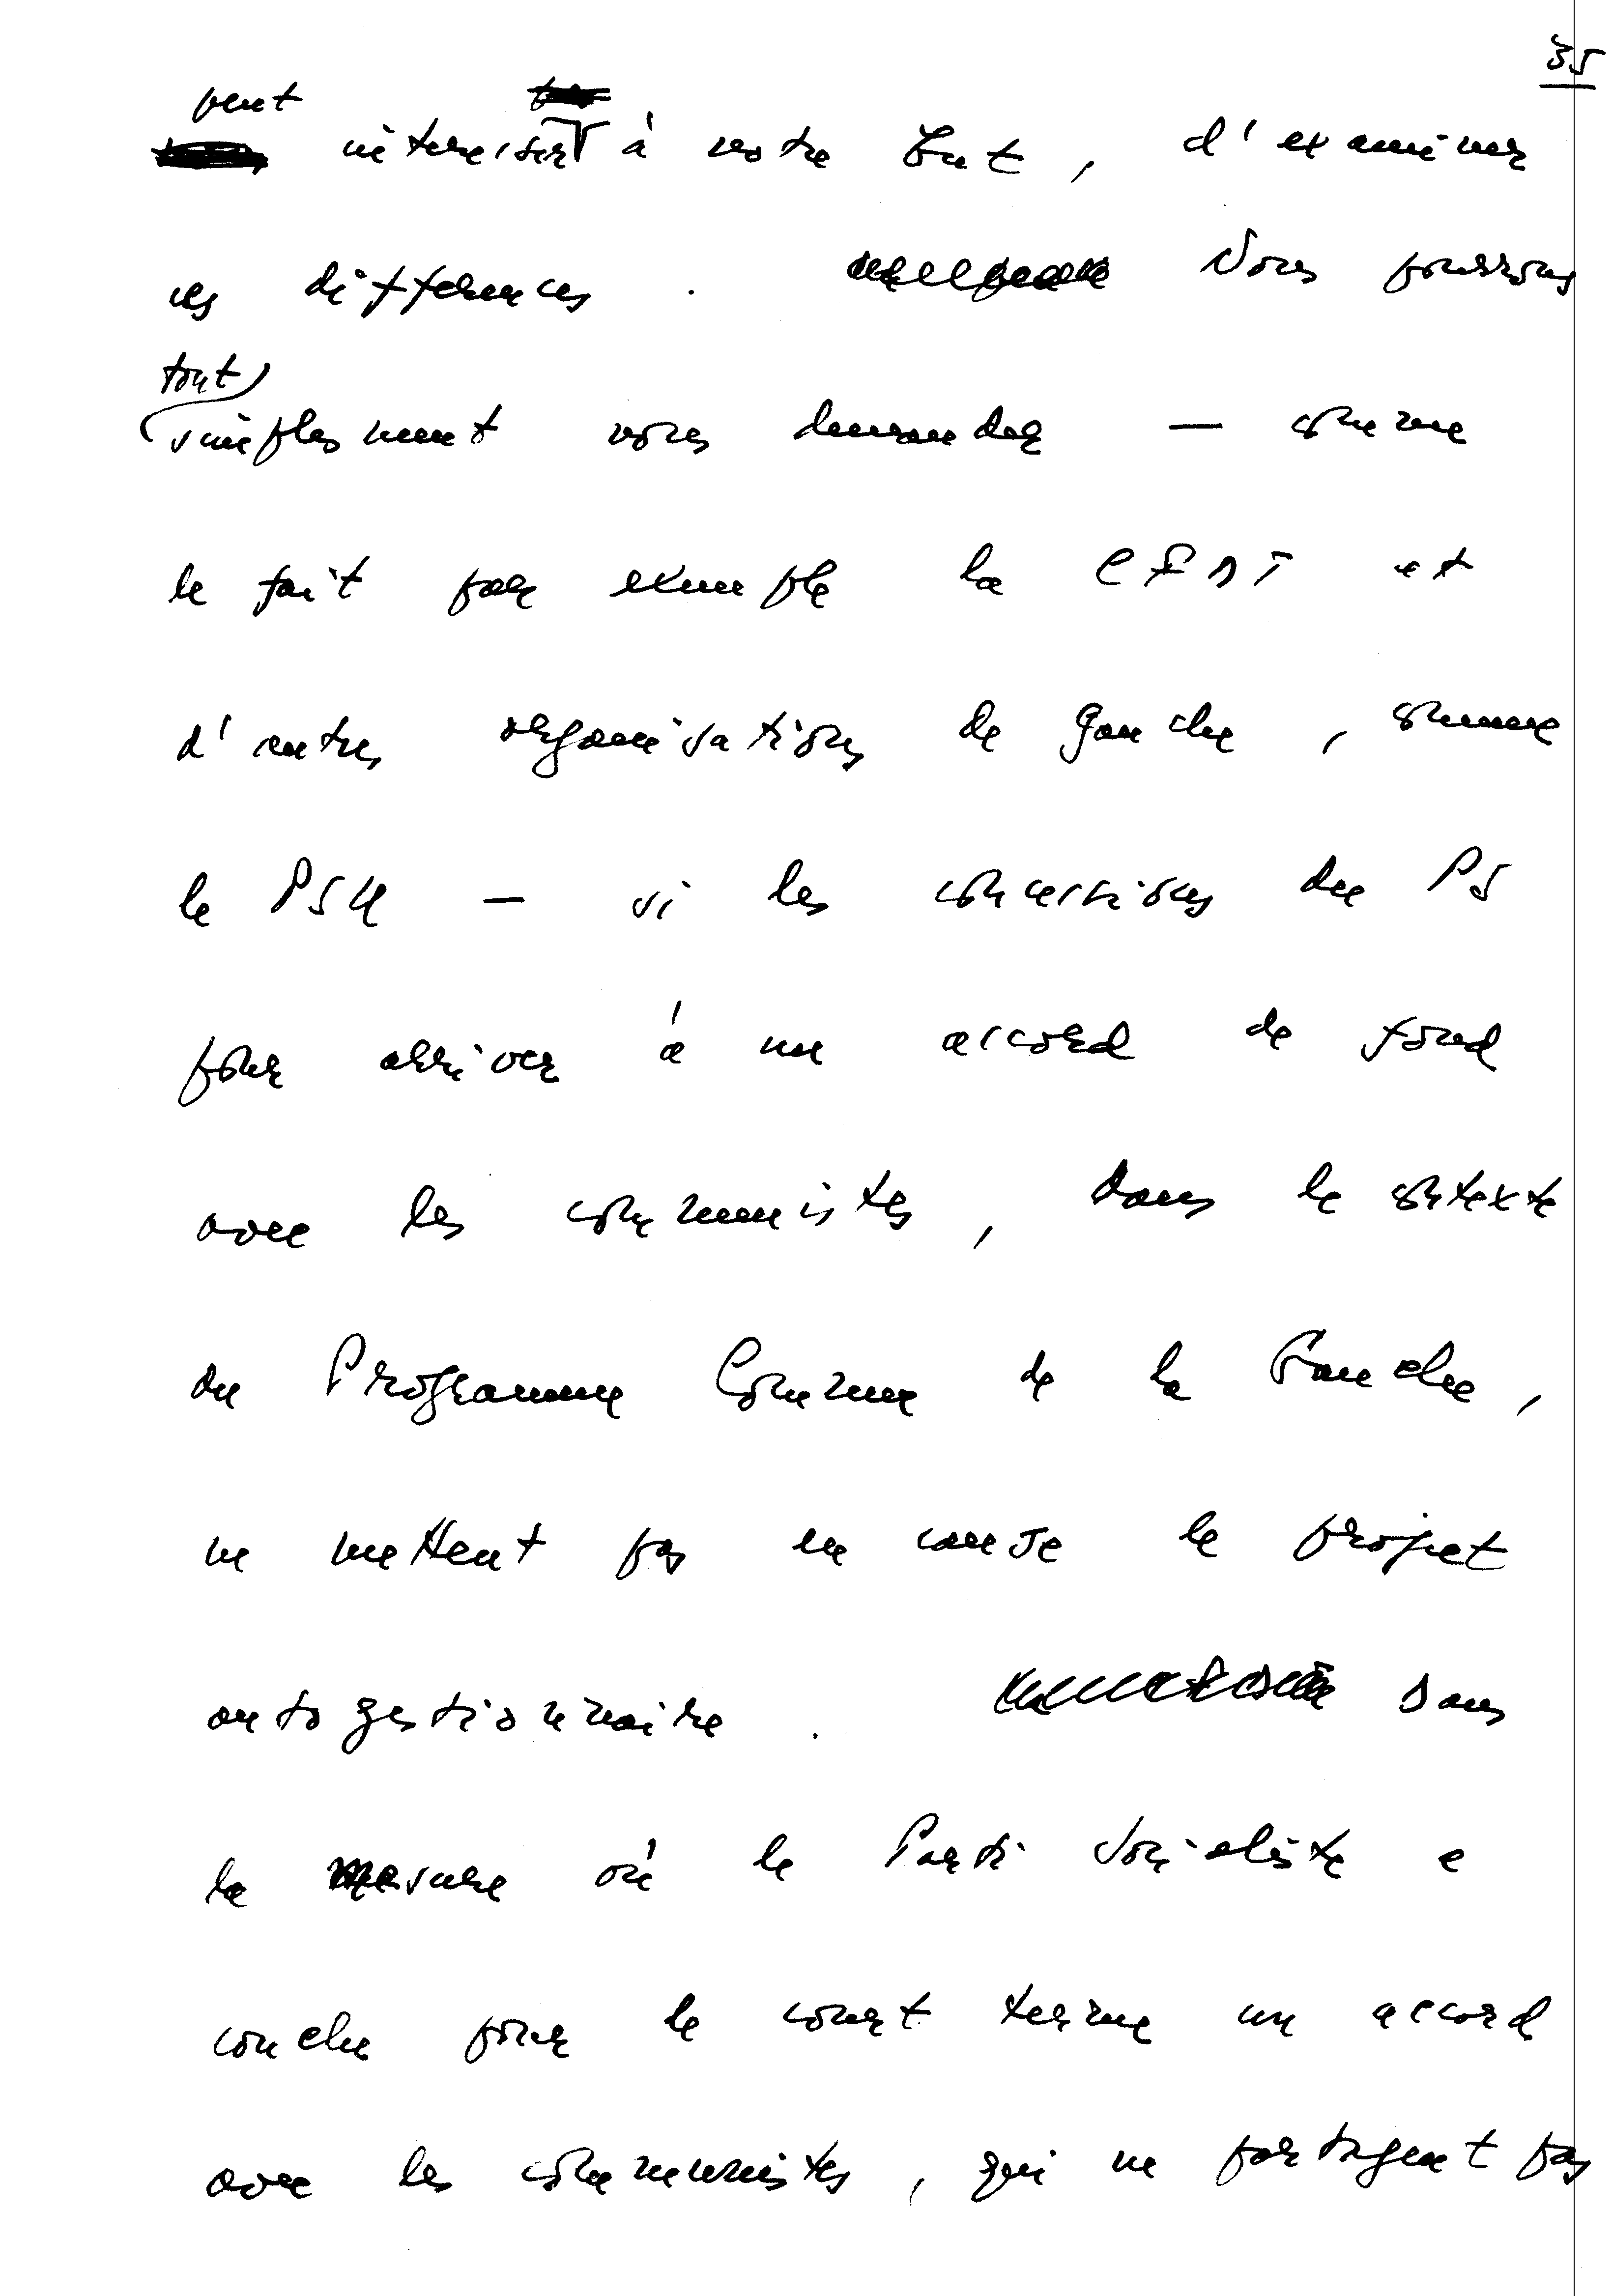 35
peut
intéresser à votre but, d'examiner
ces différences. Nous pourrions
tout
simplement vous demander — comme
le fait par exemple la CFDT et
d'autres organisations de gauche, comme
le PSU — si les concessions du PS
pour arriver à un accord de fond
avec les communistes, dans le contexte
du Programme Commun de la Gauche,
ne mettent pas en cause le projet
autogestionnaire. Dans
la mesure où le Parti Socialiste a
conclu pour le court terme un accord
avec les communistes, qui ne partagent pas